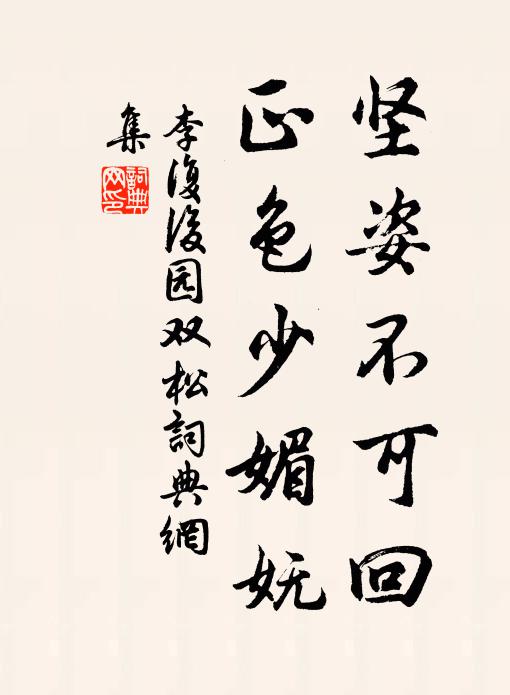 坚姿不可回
正色少媚妩
李復後园双松詞典網
集
詞典
网印